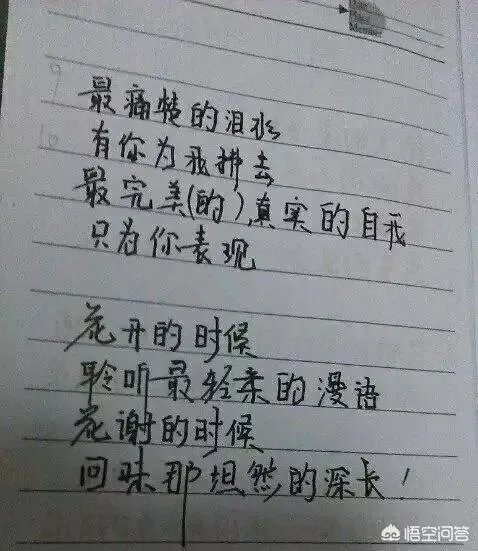 Member
9
10
最痛楚的泪水
有你为我拂去
最完美(的),真实的自我
只为你表现
花开的时候
聆听最轻柔的漫语
花谢的时候
回味那坦然的深长!
悟空问答